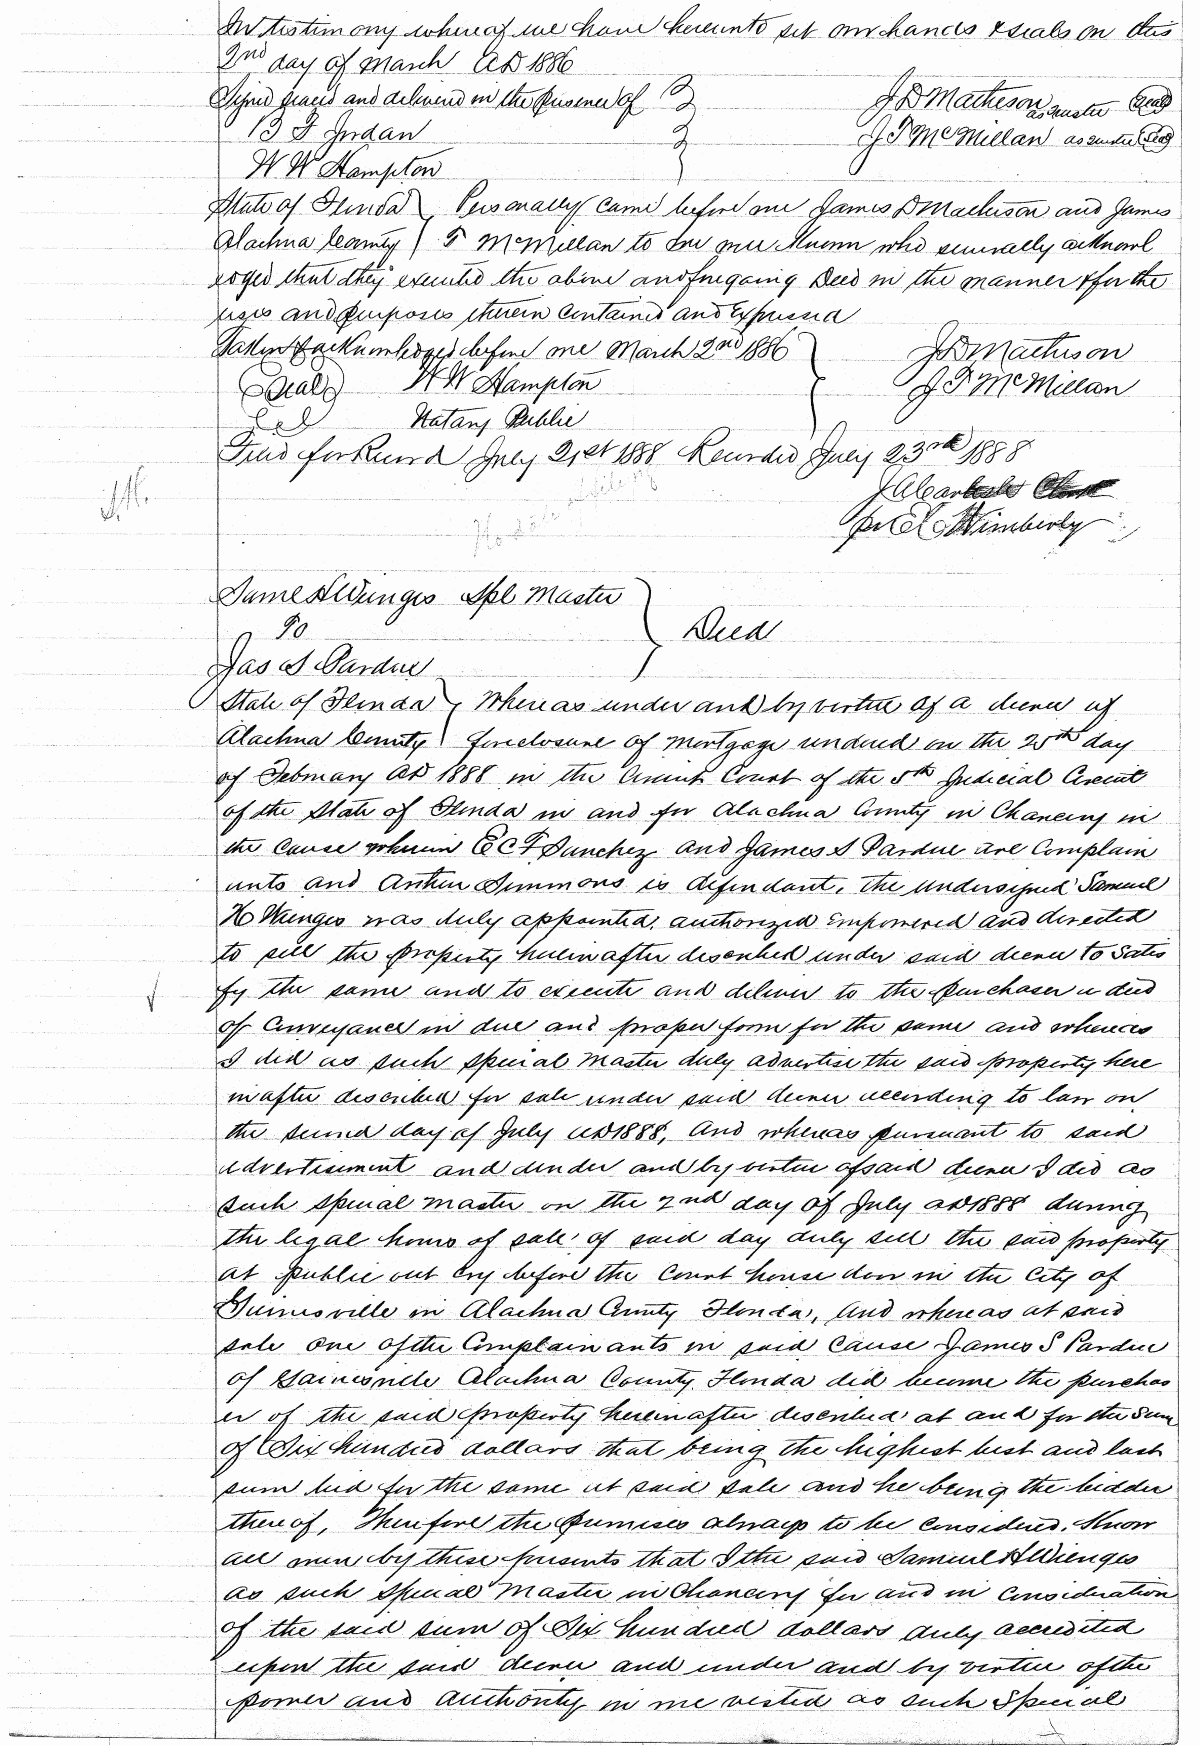 In testimony whereof we have hereunto set our hands & seals on this
2nd day of March AD 1886
Signed sealed and delivered in the presence of J D Matheson as trustee Seal
B F Jordan J F McMillan as trustee Seal
W W Hampton
State of Florida Personally came before me James D Matheson and James
Alachua County F McMillan to me known who severally acknowl
edged that they executed the above and foregoing Deed in the manner & for the
uses and purposes therein contained and Expressed
Taken & acknowledged before me March 2nd 1886 J D Matheson
Seal W W Hampton J F McMillan
Notary Public
Filed for Record July 21st 1888 Recorded July 23rd 1888
J A Carlisle Clerk
pr Wimberly
Samel H Wienges Spl Master
To Deed
Jas S Pardue
State of Florida Whereas under and by virtue of a decree of
Alachua County foreclosure of mortgage rendered on the 25th day
of February AD 1888 in the Circuit Court of the 5th Judicial Circuit
of the State of Florida in and for Alachua County in Chancery in
the cause wherein E C F Sanchez and James S Pardue are Complain
ants and Arthur Simmons is defendant, the undersigned Samuel
H Wienges was duly appointed, authorized Empowered and directed
to sell the property hereinafter described under said decree to Satis
fy the same and to execute and deliver to the purchaser a deed
of Conveyance in due and proper form for the same and whereas
I did as such special Master duly advertise the said property here
inafter described for sale under said decree according to law on
the second day of July AD 1888, And whereas pursuant to said
advertisement and under and by virtue of said decree I did as
such special master on the 2nd day of July AD 1888 during
the legal hours of sale of said day duly sell the said property
at public out cry before the Court house door in the City of
Gainesville in Alachua County Florida, And whereas at said
sale one of the Complainants in said Cause James S Pardue
of Gainesville Alachua County Florida did become the purchas
er of the said property hereinafter described at and for the Sum
of Six hundred dollars that being the highest best and last
sum bid for the same at said sale and he being the bidder
thereof, Therefore the premises always to be considered. Know
all men by these presents that I the said Samuel H Wienges
as such Special Master in Chancery for and in Consideration
of the said sum of Six hundred dollars duly accredited
upon the said decree and under and by virtue of the
power and authority in me vested as such Special